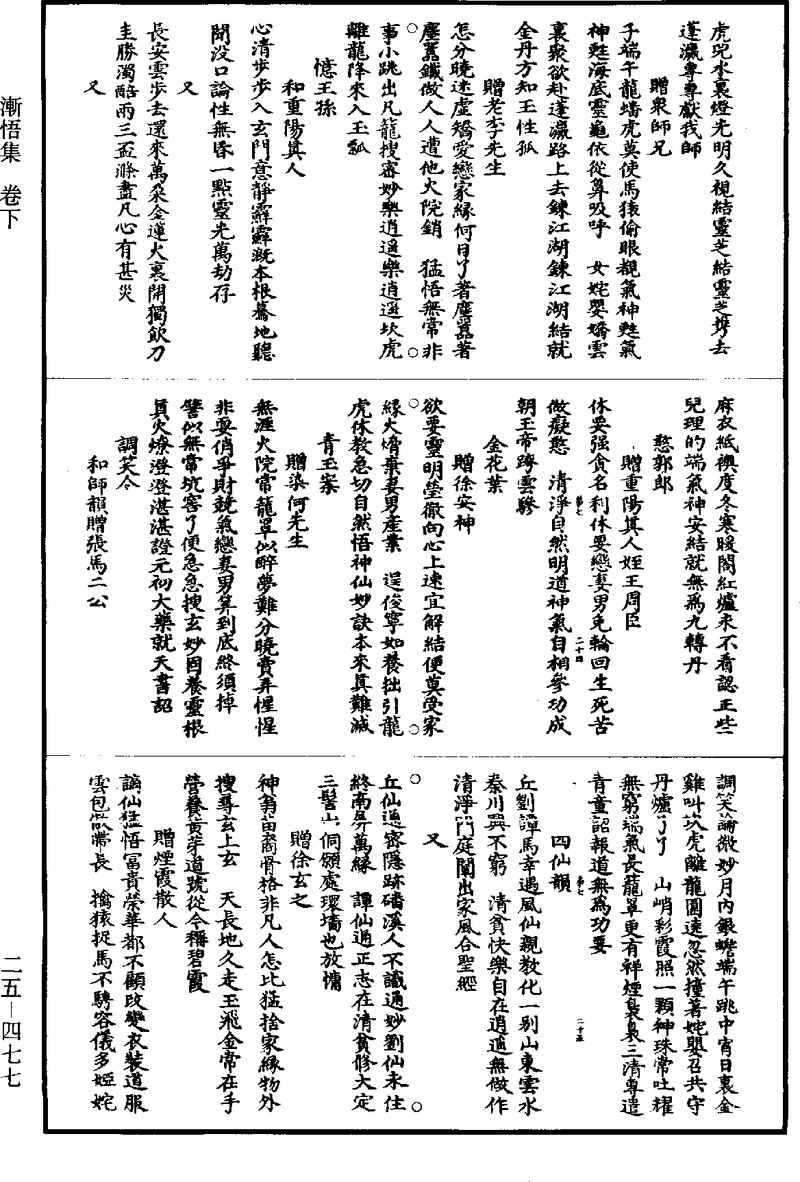 虎兕水裏燈光明久視結靈芝結靈芝攜去
蓬瀛專專獻我師
贈衆師兄
子端午龍墻虎莫使馬猿偷眼覷氣神甦氣
神甦海底靈龜依從鼻吸呼　女姹嬰嬌雲
裏聚欲赴蓬瀛路上去鍊江湖鍊江湖結就
金丹方知玉性孤
贈老李先生
怎分曉迷虛矯愛戀家緣何日了著塵囂著
塵囂鐵做人人遭他火院銷　猛悟無常非
事小跳出凡籠搜密妙樂逍遥樂逍遥坎虎
離龍降來入玉瓢
憶王孫
和重陽真人
心清步步入玄門意靜霏霏溉本根驀地聽
聞沒口論性無昏一點靈光萬劫存
又
長安雲步去還來萬朶金蓮火裏開獨飲刀
圭勝濁醅兩三盃滌盡凡心有甚災
又
麻衣紙襖度冬寒暖閣紅爐永不看認正些
兒理的端氣神安結就無爲九轉丹
憨郭郎
贈重陽真人姪王周臣
休要强貪名利休要戀妻男免輪回生死苦
做癡憨　清淨自然明道神氣自相參功成
朝玉帝跨雲驂
金花葉
贈徐安神
欲要靈明瑩徹向心上速宜解結便莫受家
緣火熁棄妻男產業　逞俊寧如養拙引龍
虎休教急切自然悟神仙妙訣本來真難滅
青玉案
贈染何先生
無涯火院常籠罩似醉夢難分曉賣弄惺惺
非要俏爭財競氣戀妻男算到底終須掉
譬似無常坑害了便急急搜玄妙固養靈根
真火燎澄澄湛湛證元初大藥就天書詔
調笑令
和師韻贈張馬二公
調笑論微妙月內銀蟾端午跳中宵日裏金
雞叫坎虎離龍圍遶忽然撞著姹嬰召共守
丹爐了了　山峭彩霞照一顆神珠常吐耀
無窮端氣長籠罩更有祥煙裊裊三清專遣
青童詔報道無爲功要
四仙韻
丘劉譚馬幸遇風仙親教化一別山東雲水
秦川興不窮　清貧快樂自在逍遥無做作
清淨門庭闡出家風合聖經
又
丘仙通密隱跡磻溪人不識通妙劉仙永住
終南屏萬緣　譚仙通正志在清貧修大定
三髻山侗願處環墻也放慵
贈徐玄之
神翁苗裔骨格非凡人怎比猛捨家緣物外
搜尋玄上玄　天長地久走玉飛金常在手
營養黃芽道號從今稱碧霞
贈煙霞散人
謫仙猛悟冨貴榮華都不顧改變衣裝道服
雲包㡡帶長　擒猿捉馬不騁容儀多婭姹
漸悟集　卷下
二五—四七七